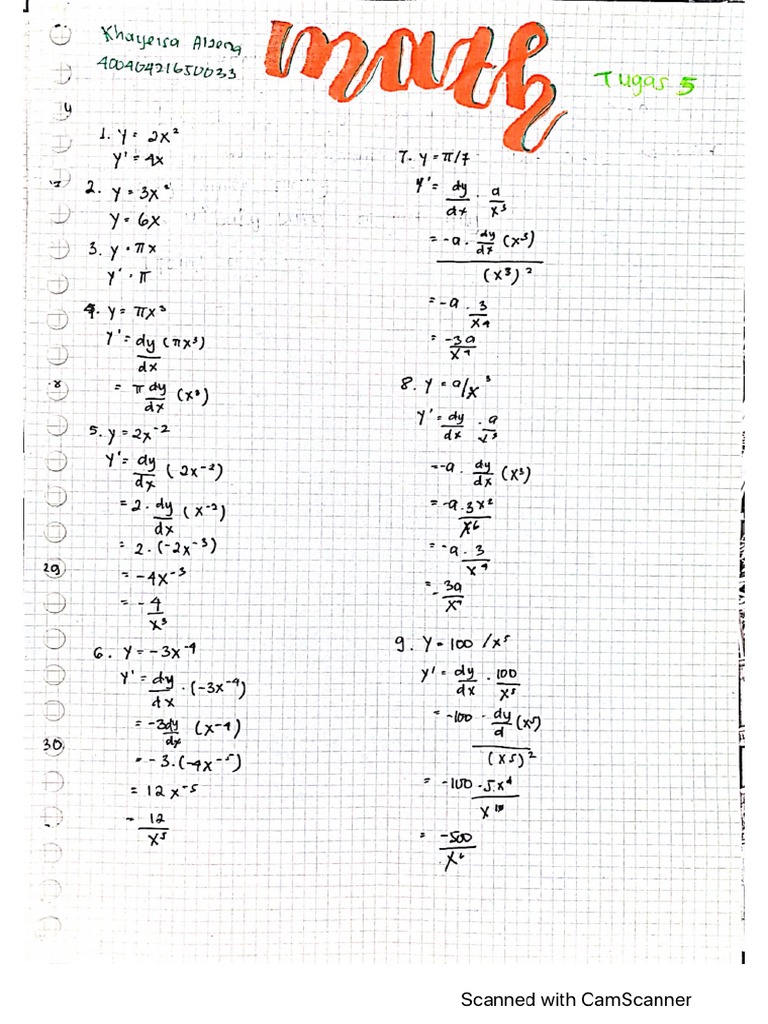 math
Tugas 5
1. y = 2x²
y' = 4x
2. y = 3x²
y = 6x
3. y = πx
y' = π
4. y = πx³
y' = dy/dx (πx³)
= π dy/dx (x³)
5. y = 2x⁻²
y' = dy/dx (2x⁻²)
= 2 . dy/dx (x⁻²)
= 2 . (-2x⁻³)
= -4x⁻³
= -4/x³
6. y = -3x⁻⁴
y' = dy/dx . (-3x⁻⁴)
= -3dy/dx (x⁻⁴)
= -3 . (-4x⁻⁵)
= 12x⁻⁵
= 12/x⁵
7. y = π/7
y' = dy/dx . a/x³
= -a . dy/dx (x³) / (x³)²
= -a . 3/x⁴
= -3a/x⁴
8. y = a/x³
y' = dy/dx . a/x³
= -a . dy/dx (x³)
= -a . 3x²/x⁶
= -a . 3/x⁴
= -3a/x⁴
9. y = 100/x⁵
y' = dy/dx . 100/x⁵
= -100 . dy/d (x⁵) / (x5)²
= -100 . 5.x⁴/x¹⁰
= -500/x⁶
29
30
Scanned with CamScanner